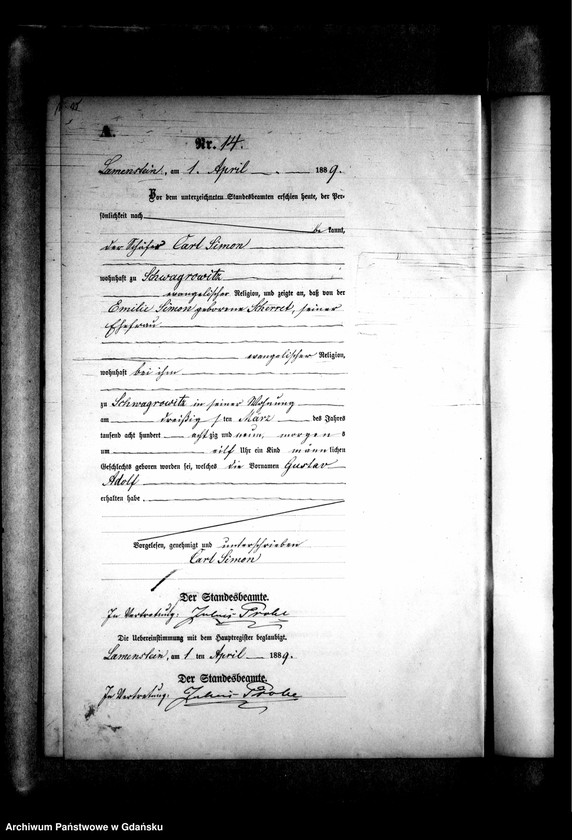 A.
Nr. 14.
Lamenstein, am 1. April 1889.
Vor dem unterzeichneten Standesbeamten erschien heute, der Per-
sönlichkeit nach
be kannt,
der Schäfer Carl Simon
wohnhaft zu Schwagrowitz
evangelischer Religion, und zeigte an, daß von der
Emilie Simon geborene Scherret, seiner
Ehefrau
evangelischer Religion,
wohnhaft bei ihm
zu Schwagrowitz in seiner Wohnung
am dreißig sten März des Jahres
tausend acht hundert achtzig und neun, morgen s
um eilf Uhr ein Kind männlichen
Geschlechts geboren worden sei, welches die Vornamen Gustav
Adolf
erhalten habe.
Vorgelesen, genehmigt und unterschrieben
Carl Simon
Der Standesbeamte.
In Vertretung: Julius
Die Uebereinstimmung mit dem Hauptregister beglaubigt.
Lamenstein, am 1 ten April 1889.
Der Standesbeamte.
In Vertretung: Julius
Archiwum Państwowe w Gdańsku